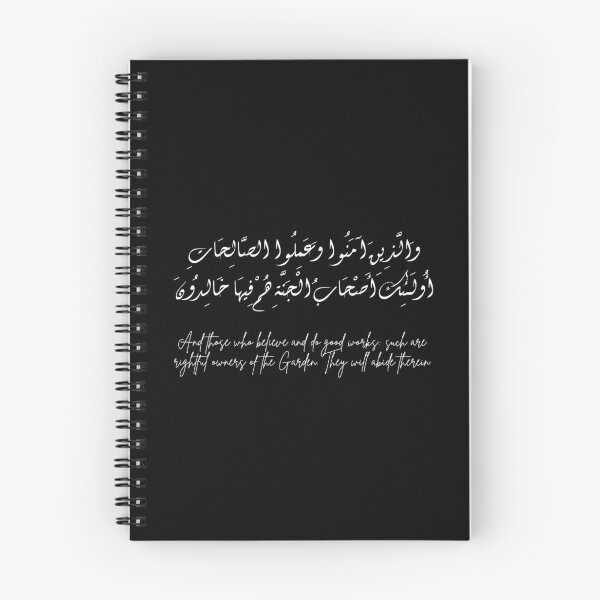 وَالَّذِينَ آمَنُوا وَعَمِلُوا الصَّالِحَاتِ
أُولَٰئِكَ أَصْحَابُ الْجَنَّةِ هُمْ فِيهَا خَالِدُونَ
And those who believe and do good works: such are
rightful owners of the Garden. They will abide therein